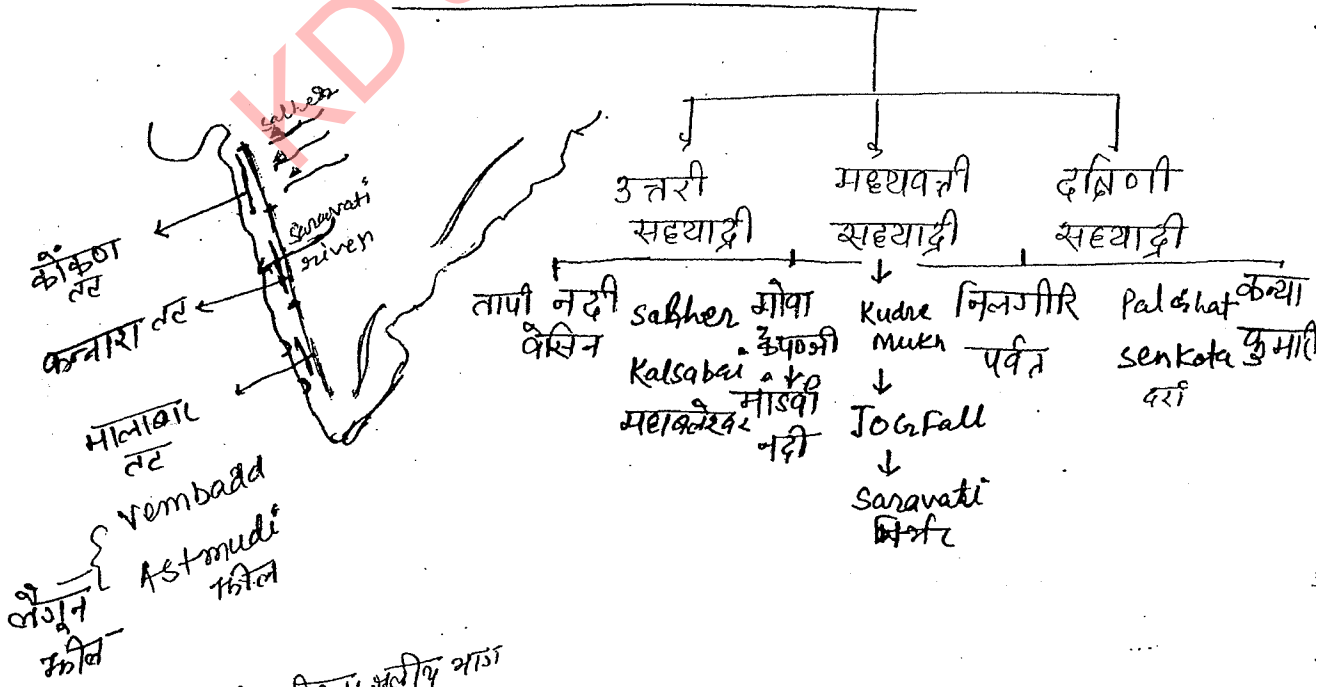 KD
salher
saravati
river
कोंकण
तट
कन्नारा तट
मालाबार
तट
vembadd
Astmudi
झील
लैगून
झील
उत्तरी
सहयाद्री
मध्यवर्ती
सहयाद्री
दक्षिणी
सहयाद्री
तापी नदी
बेसिन
salher
Kalsabai
महाबलेश्वर
गोवा
पणजी
मांडवी
नदी
Kudre
Mukh
JOG Fall
Saravati
निलगीरि
पर्वत
Palghat
senkota
दर्रा
कन्या
कुमारी
भाग